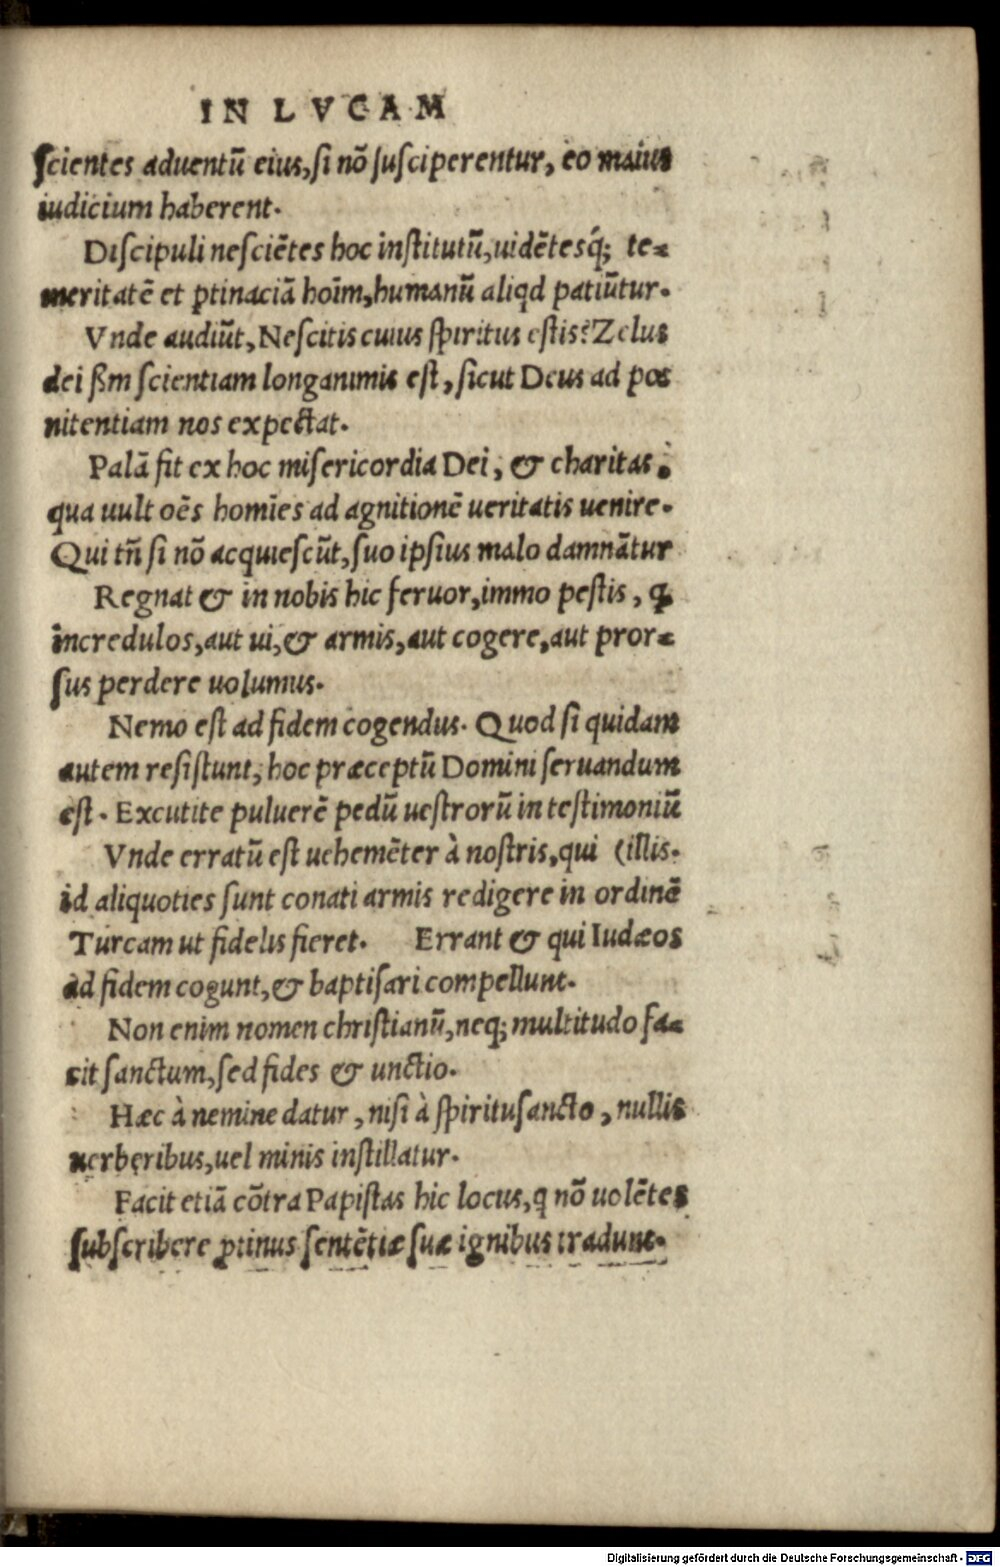 IN LVCAM
scientes aduentū eius, si nō susciperentur, eo maius
iudicium haberent.
Discipuli nesciētes hoc institutū, uidētesq́; te-
meritatē et ꝑtinaciā hoīm, humanū aliqd patiūtur.
Vnde audiūt, Nescitis cuius spiritus estis? Zelus
dei ẜm scientiam longanimis est, sicut Deus ad pœ
nitentiam nos expectat.
Palā fit ex hoc misericordia Dei, & charitas.
qua uult oēs homīes ad agnitionē ueritatis uenire.
Qui tn̄ si nō acquiescūt, suo ipsius malo damnātur
Regnat & in nobis hic feruor, immo pestis, q
incredulos, aut ui, & armis, aut cogere, aut pror-
sus perdere uolumus.
Nemo est ad fidem cogendus. Quod si quidam
autem resistunt, hoc præceptū Domini seruandum
est. Excutite puluerē pedū uestrorū in testimoniū
Vnde erratū est uehemēter à nostris, qui (illis.
id aliquoties sunt conati armis redigere in ordinē
Turcam ut fidelis fieret. Errant & qui Iudæos
ad fidem cogunt, & baptisari compellunt.
Non enim nomen christianū, neq; multitudo fa-
cit sanctum, sed fides & unctio.
Hæc à nemine datur, nisi à spiritusancto, nullis
uerberibus, uel minis instillatur.
Facit etiā cōtra Papistas hic locus, q nō uolētes
subscribere ꝓtinus sentētiæ suæ ignibus tradunt.
Digitalisierung gefördert durch die Deutsche Forschungsgemeinschaft - DFG